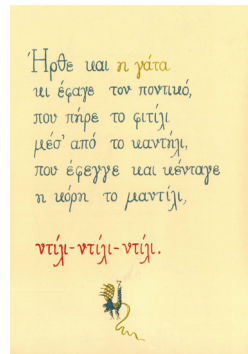 Ήρθε και η γάτα
κι έφαγε τον ποντικό,
που πήρε το φιτίλι
μέσ' από το καντήλι,
που έφεγγε και κένταγε
η κόρη το μαντίλι,
ντίλι-ντίλι-ντίλι.